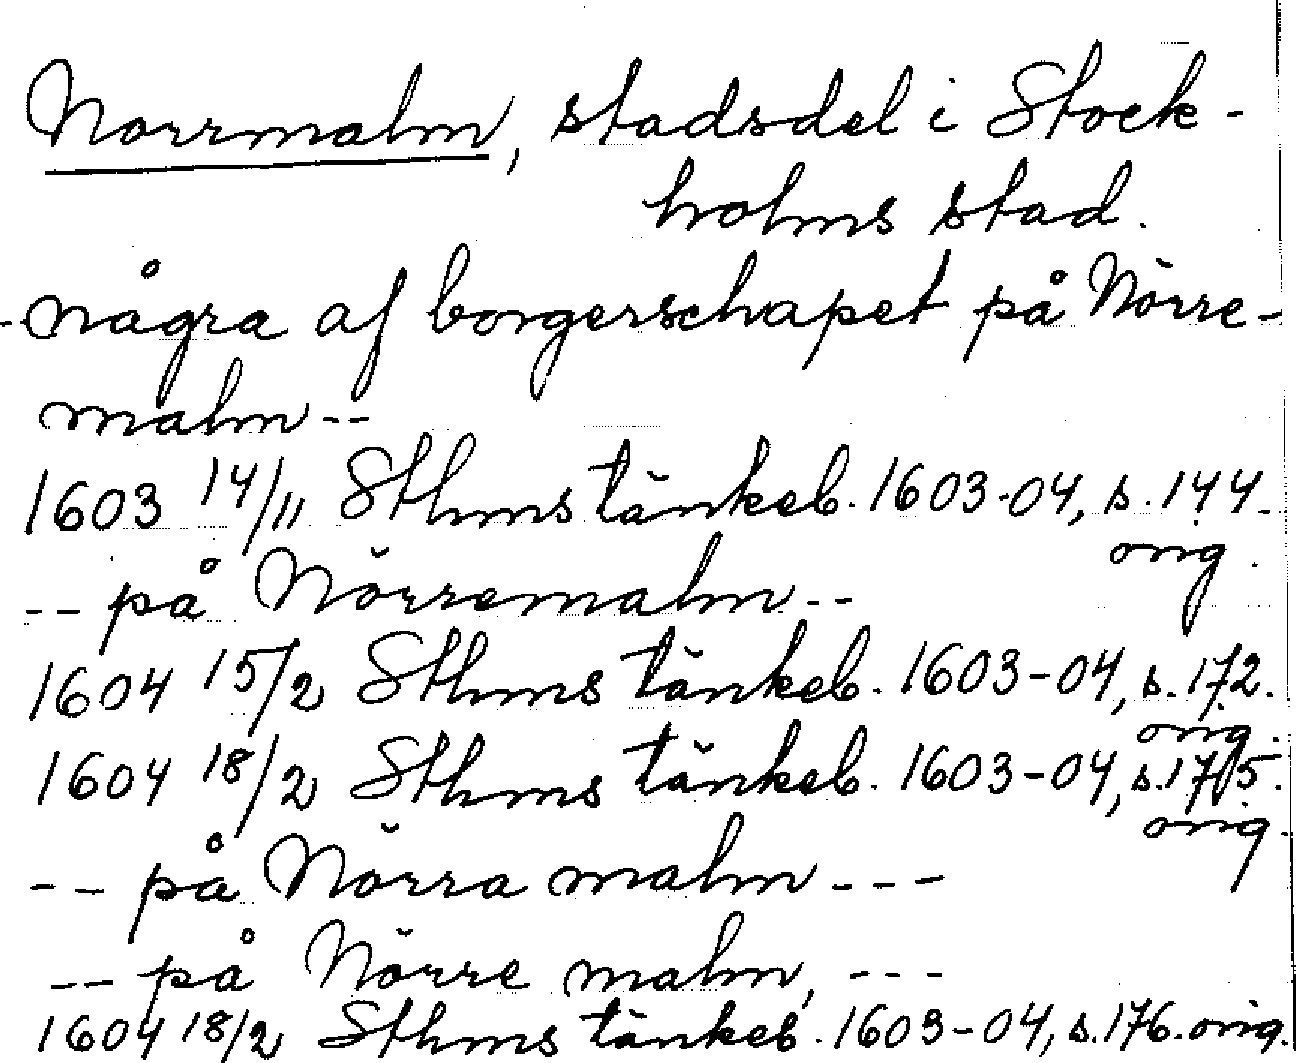 Norrmalm, stadsdel i Stock-
holms stad.
- några af borgerschapet på Nörre-
malm --
1603 14/11 Sthms tänkeb. 1603-04, s. 144
orig.
-- på Nörremalm --
1604 15/2 Sthms tänkeb. 1603-04, s. 172.
orig.
1604 18/2 Sthms tänkeb. 1603-04, s. 175.
orig.
-- på Nörra malm ---
-- på Nörre malm, ---
1604 18/2 Sthms tänkeb. 1603-04, s. 176. orig.